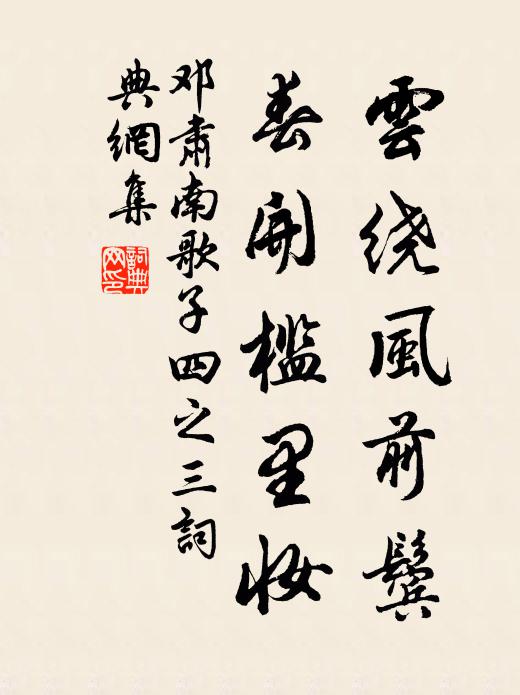 雲绕風前鬓
春開檻里妝
邓肅南歌子四之三詞
典網集
詞典
网印